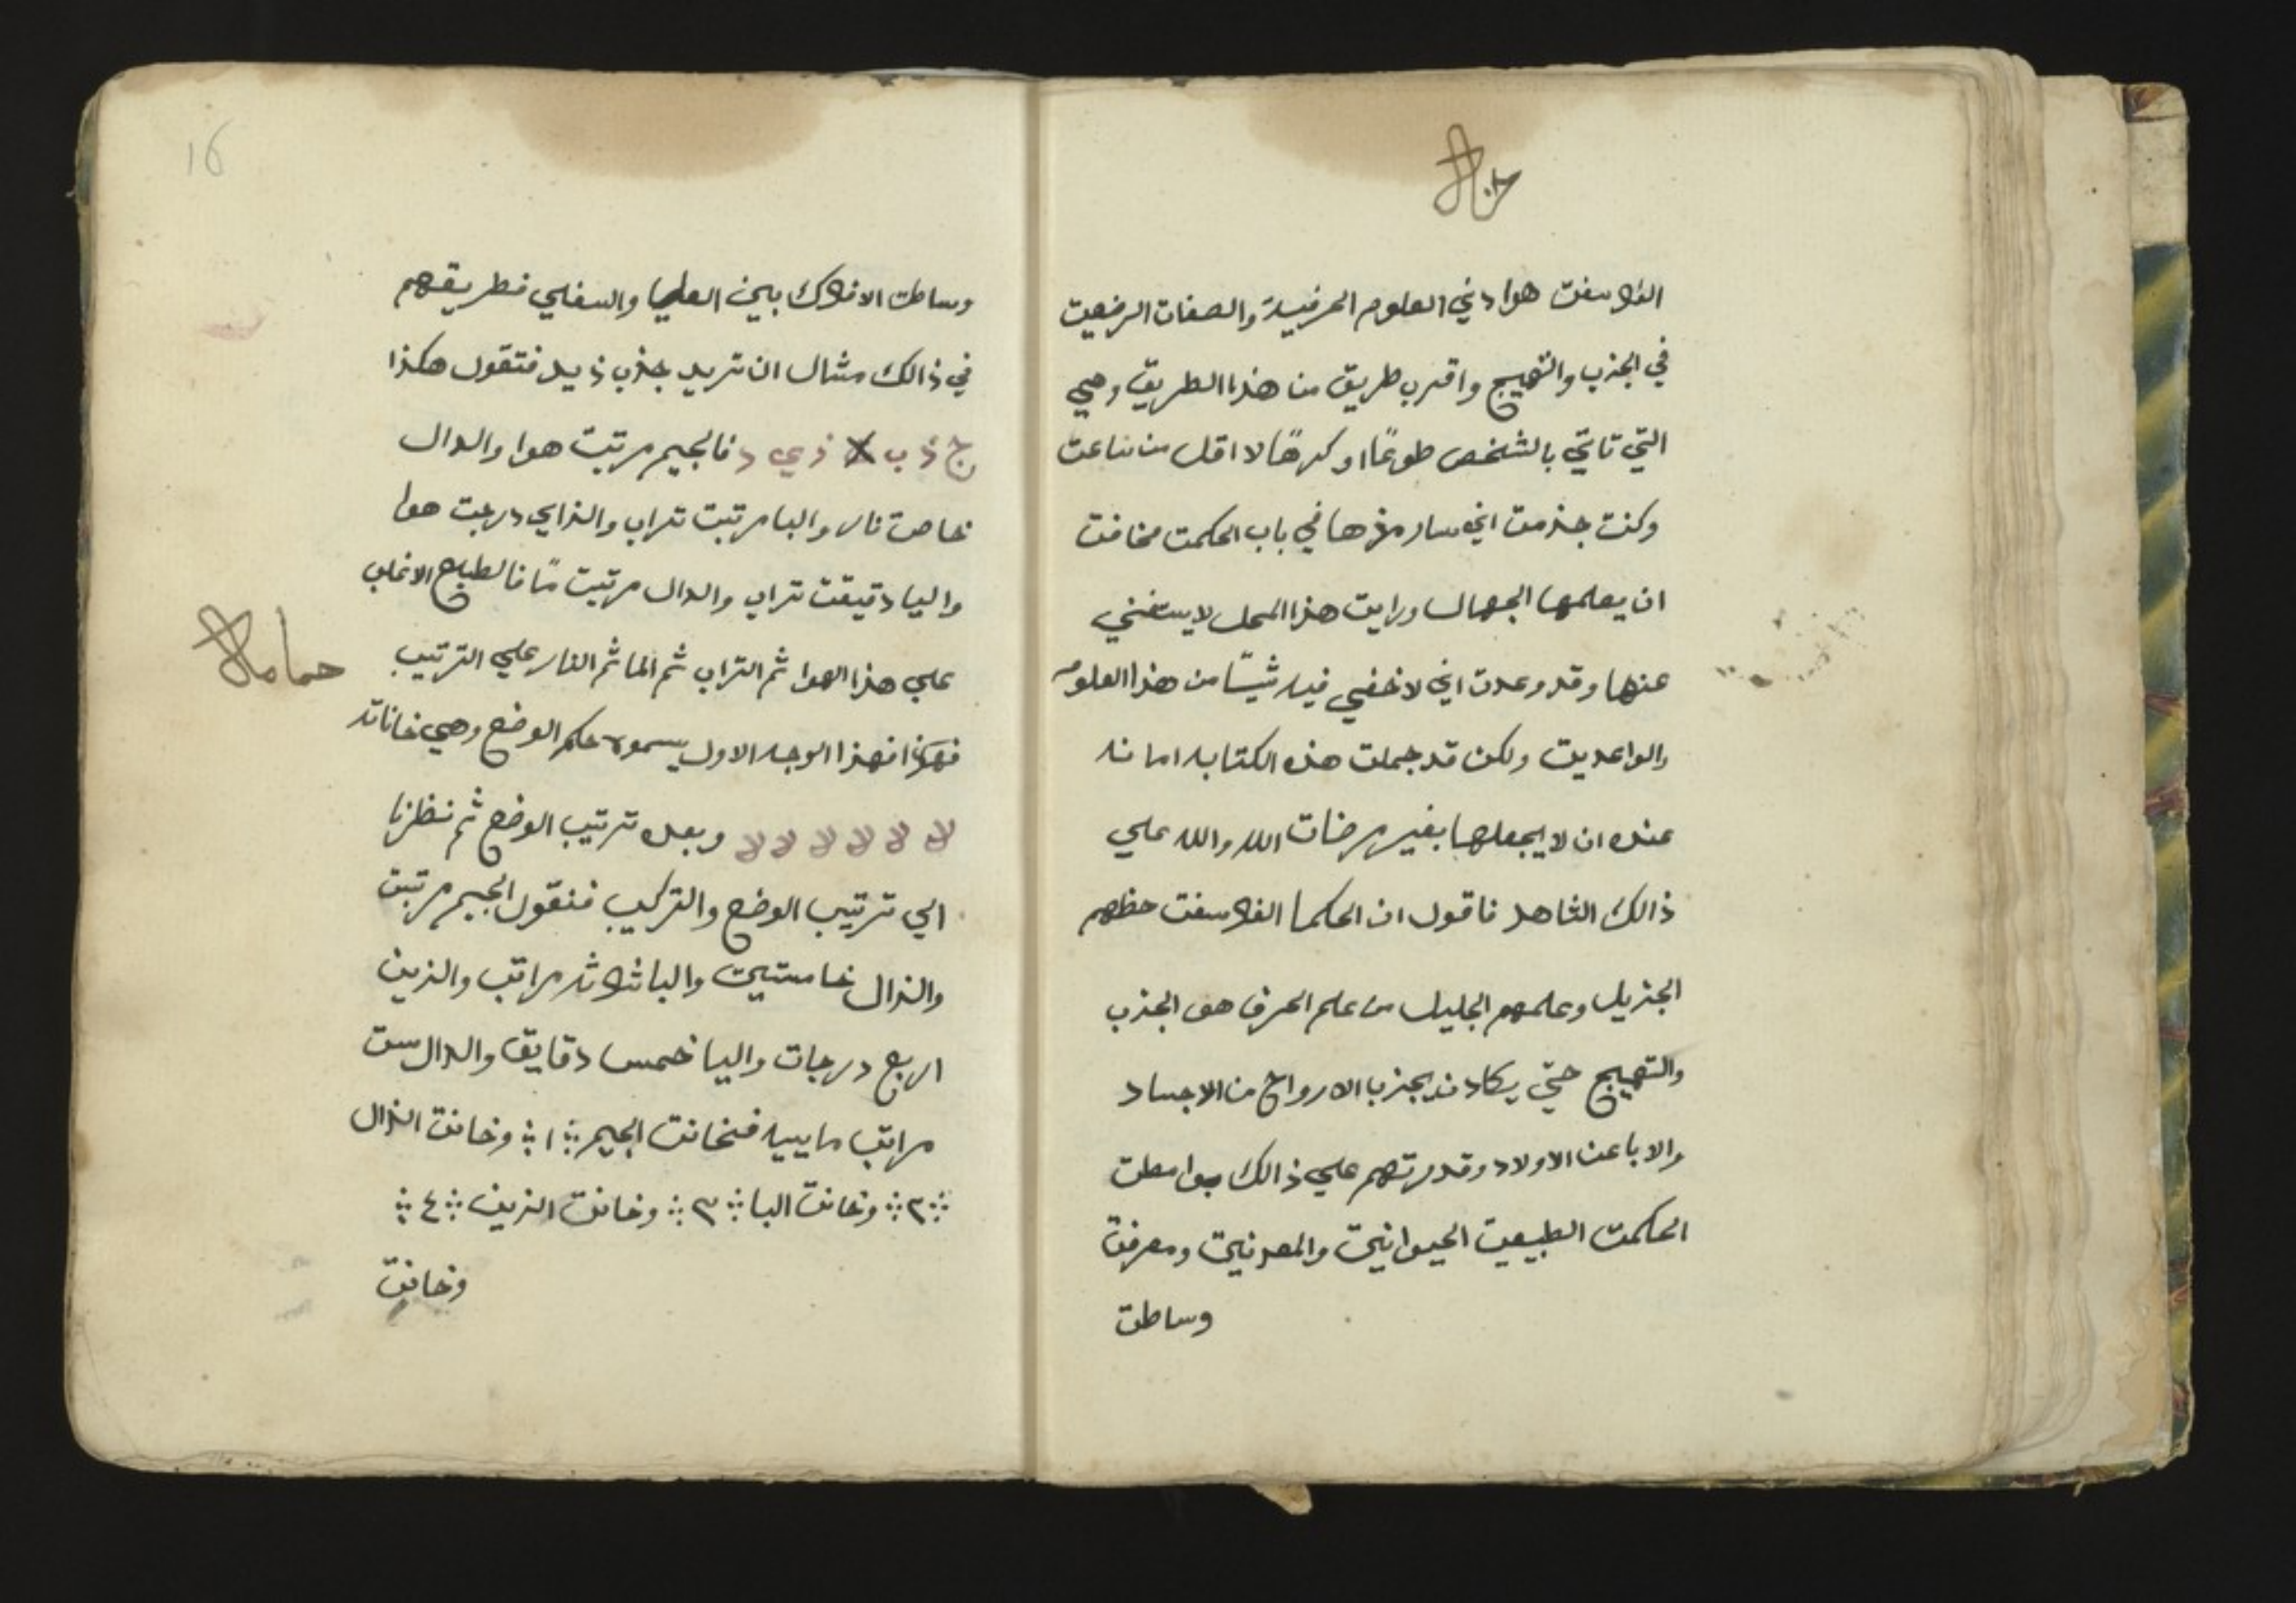 الفلاسفت هوا دني العلوم الحرفية والصفات الرفعيت
في الجذب والتهييج واقرب طريق من هذا الطريق وهي
التي تاتي بالشخص طوعًا او كرهًا لا اقل من ساعت
وكنت جزمت اني سارمزها في باب الحكمت مخافت
ان يعلمها الجهال ورايت هذا المحل لا يستغني
عنها وقد وعدت اني لاخفي فيه شيًا من هذا العلوم
والواعديت ولكن قد جعلت هذه الكتابه امانه
عنده ان لا يجعلها بغير مرضات الله والله علي
ذالك الشاهد فاقول ان الحكما الفلاسفت حظهم
الجزيل وعلمهم الجليل من علم الحرف هو الجذب
والتهييج حتي يكادن يجذب الارواح من الاجساد
والابا عن الاولاد وقدرتهم علي ذالك بواسطت
الحكمت الطبيعيت الحيوانيت والمعدنيت ومعرفت
وساطت
16
وساطت الافلاك بين العليا والسفلي فطريقهم
في ذالك مثال ان تريد جذب زيد فتقول هكذا
ج ذ ب زي د فالجيم مرتبت هوا والدال
خاصت نار والبا مرتبت تراب والزاي درجت هوا
واليا دقيقت تراب والدال مرتبت مًا فالطبايع الاغلب
علي هذا الهوا ثم التراب ثم الما ثم النار علي الترتيب
فهكذا فهذا الوجه الاول يسموه حكم الوضع وهي خاناته
لا لا لا لا لا لا وبعد ترتيب الوضع ثم نظرنا
الي ترتيب الوضع والتركيب فنقول الجيم مرتبت
والذال خامستين والبا ثلاثه مراتب والزين
اربع درجات واليا خمس دقايق والدال ست
مراتب ماييه فخانت الجيم ۱ وخانت الذال
۲ وخانت البا ۳ وخانت الزين ٤
وخانت